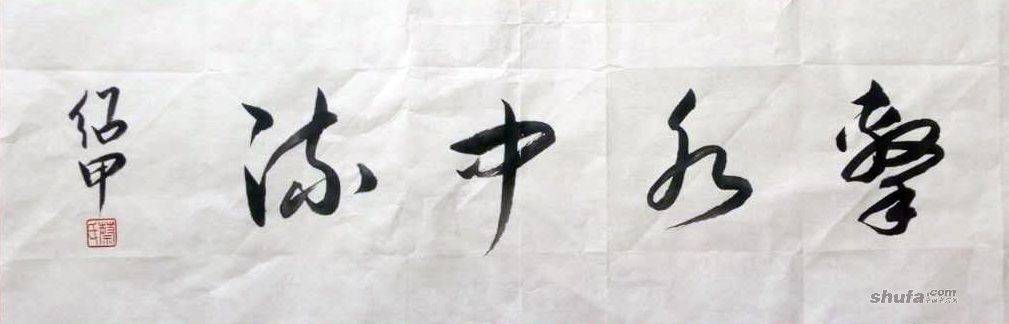 擊水中流
绍甲
蔡氏
shufa.com